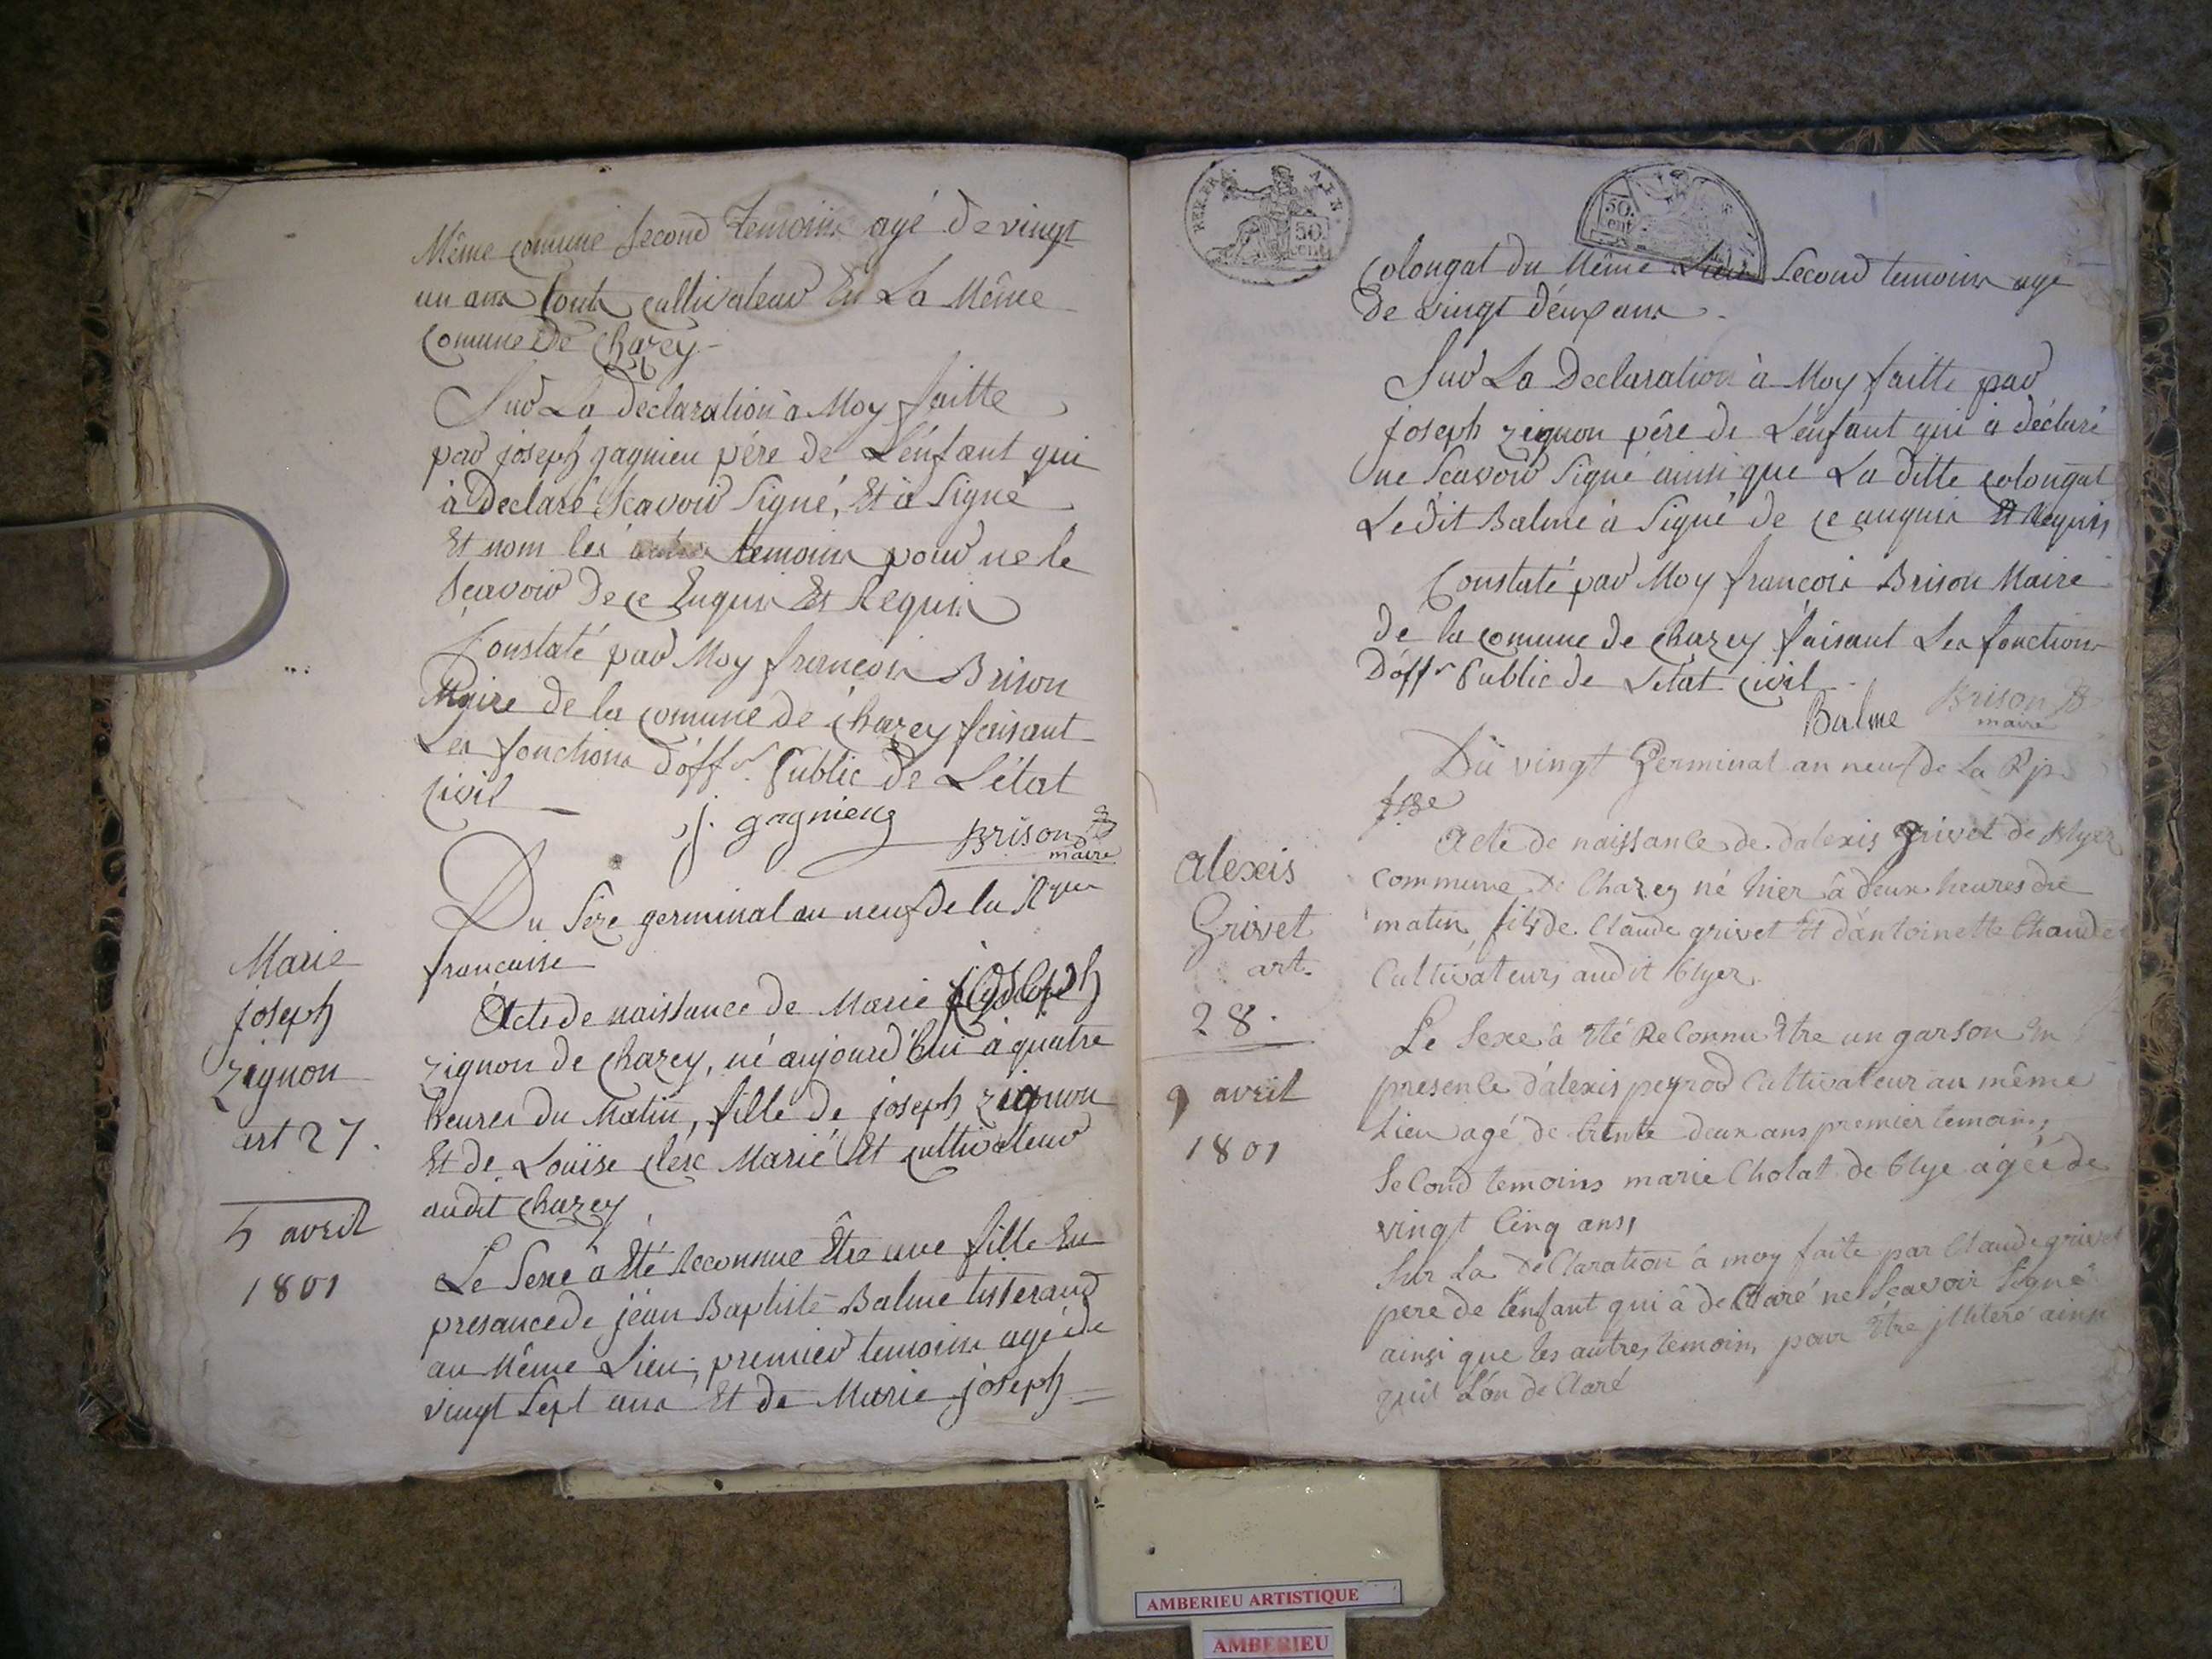 Même comune second temoins agé de vingt
un ans touts cultivateur En La Même
Comune De Chazey
Sur La déclaration à Moy faitte
par joseph gagnieu pére de L'énfant qui
à Declaré Scavoir Signé, Et à Signé
Et nom lés autres temoins pour ne le
Sçavoir De ce Enquis Et Requis
Constaté par Moy françois Brison
Maire de la comune de chazey faisant
Les fonctions d'off.r Public de L'état
Civil
j. gagnieu
Brison
maire
Du Seze germinal au neuf de la Rque
francaise
Marie
joseph
zignon
art 27.
5 avril
1801
Acte de naissance de Marie joseph
zignon de Chazey, né aujourd'hui à quatre
heures du Matin, fille de joseph zignon
Et de Louïse clérc Marié Et cultivateur
audit Chazey
Le Sexe à Eté Reconnue Être une fille En
presance de jéan Baptiste Balme tisserand
au Même Lieu, premier temoins agé de
vingt Sept ans Et de Marie joseph =
REP. FRA.
50
cent.
50
cent
Colongat du Même Lieu Second temoins agé
De vingt déux ans.
Sur La Declaration à Moy faitte par
joseph zignon pére de L'énfant qui à déclaré
ne Scavoir Signé ainsi que La ditte colongat
Ledit Balme à Signé de ce anquis Et Requis
Constaté par Moy francois Brison Maire
de la comune de chazey faisant Les fonctions
D'off.r Public de L'état civil.
Balme
Brison
maire
Dù vingt Germinal an neuf de La Rp.
fse
Alexis
Grivet
art.
28.
9 avril
1801
Acte de naissance de d'alexis Grivet de Blyes
Commune de Chazey né hier â deux heures du
matin, fils de Claude grivet Et d'antoinette Chaude
Cultivateurs audit Blyes.
Le Sexe à Eté Reconnu Etre un garson En
presence d'alexis peyrod Cultivateur au même
Lieu agé de trente deux ans premier temoins,
Second temoins marie Cholat de Blye agéé de
vingt Cinq ans,
Sur La déClaration à moy faite par Claude grivet
pere de L'enfant qui â déClaré ne Scavoir Signé
ainsi que les autres temoins, pour Être jlliteré ainsi
quil L'on déClaré
AMBERIEU ARTISTIQUE
AMBERIEU